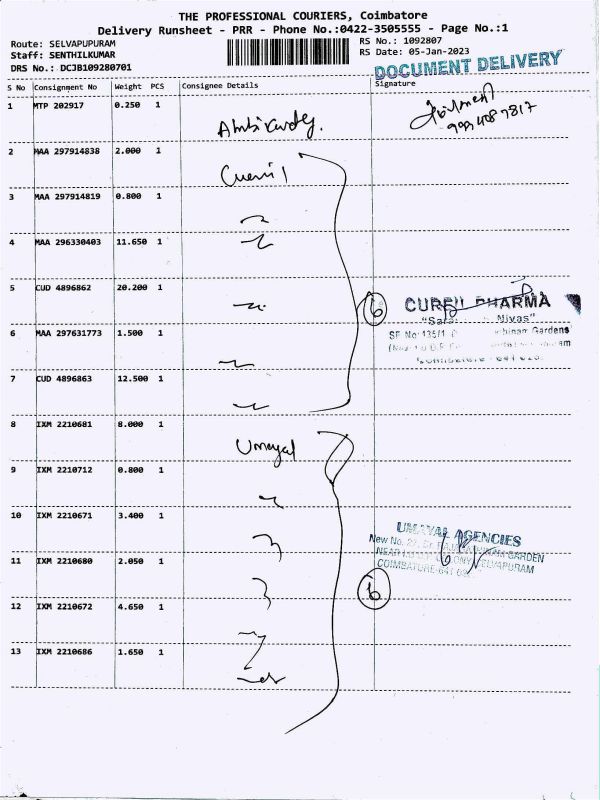 THE PROFESSIONAL COURIERS, Coimbatore
Delivery Runsheet - PRR - Phone No.:0422-3505555 - Page No.:1
Route: SELVAPUPURAM
Staff: SENTHILKUMAR
DRS No.: DCJB109280701
RS No.: 1092807
RS Date: 05-Jan-2023
DOCUMENT DELIVERY
S No Consignment No Weight PCS Consignee Details Signature
1 MTP 202917 0.250 1
2 MAA 297914838 2.000 1
3 MAA 297914819 0.800 1
4 MAA 296330403 11.650 1
5 CUD 4896862 20.200 1
6
PHARMA
Nivas"
Gardens
6 MAA 297631773 1.500 1
7 CUD 4896863 12.500 1
8 IXM 2210681 8.000 1
Umayal
9 IXM 2210712 0.800 1
10 IXM 2210671 3.400 1
UMAYAL AGENCIES
GARDEN
SELVAPURAM
COIMBATORE-641
11 IXM 2210680 2.050 1
6
12 IXM 2210672 4.650 1
13 IXM 2210686 1.650 1